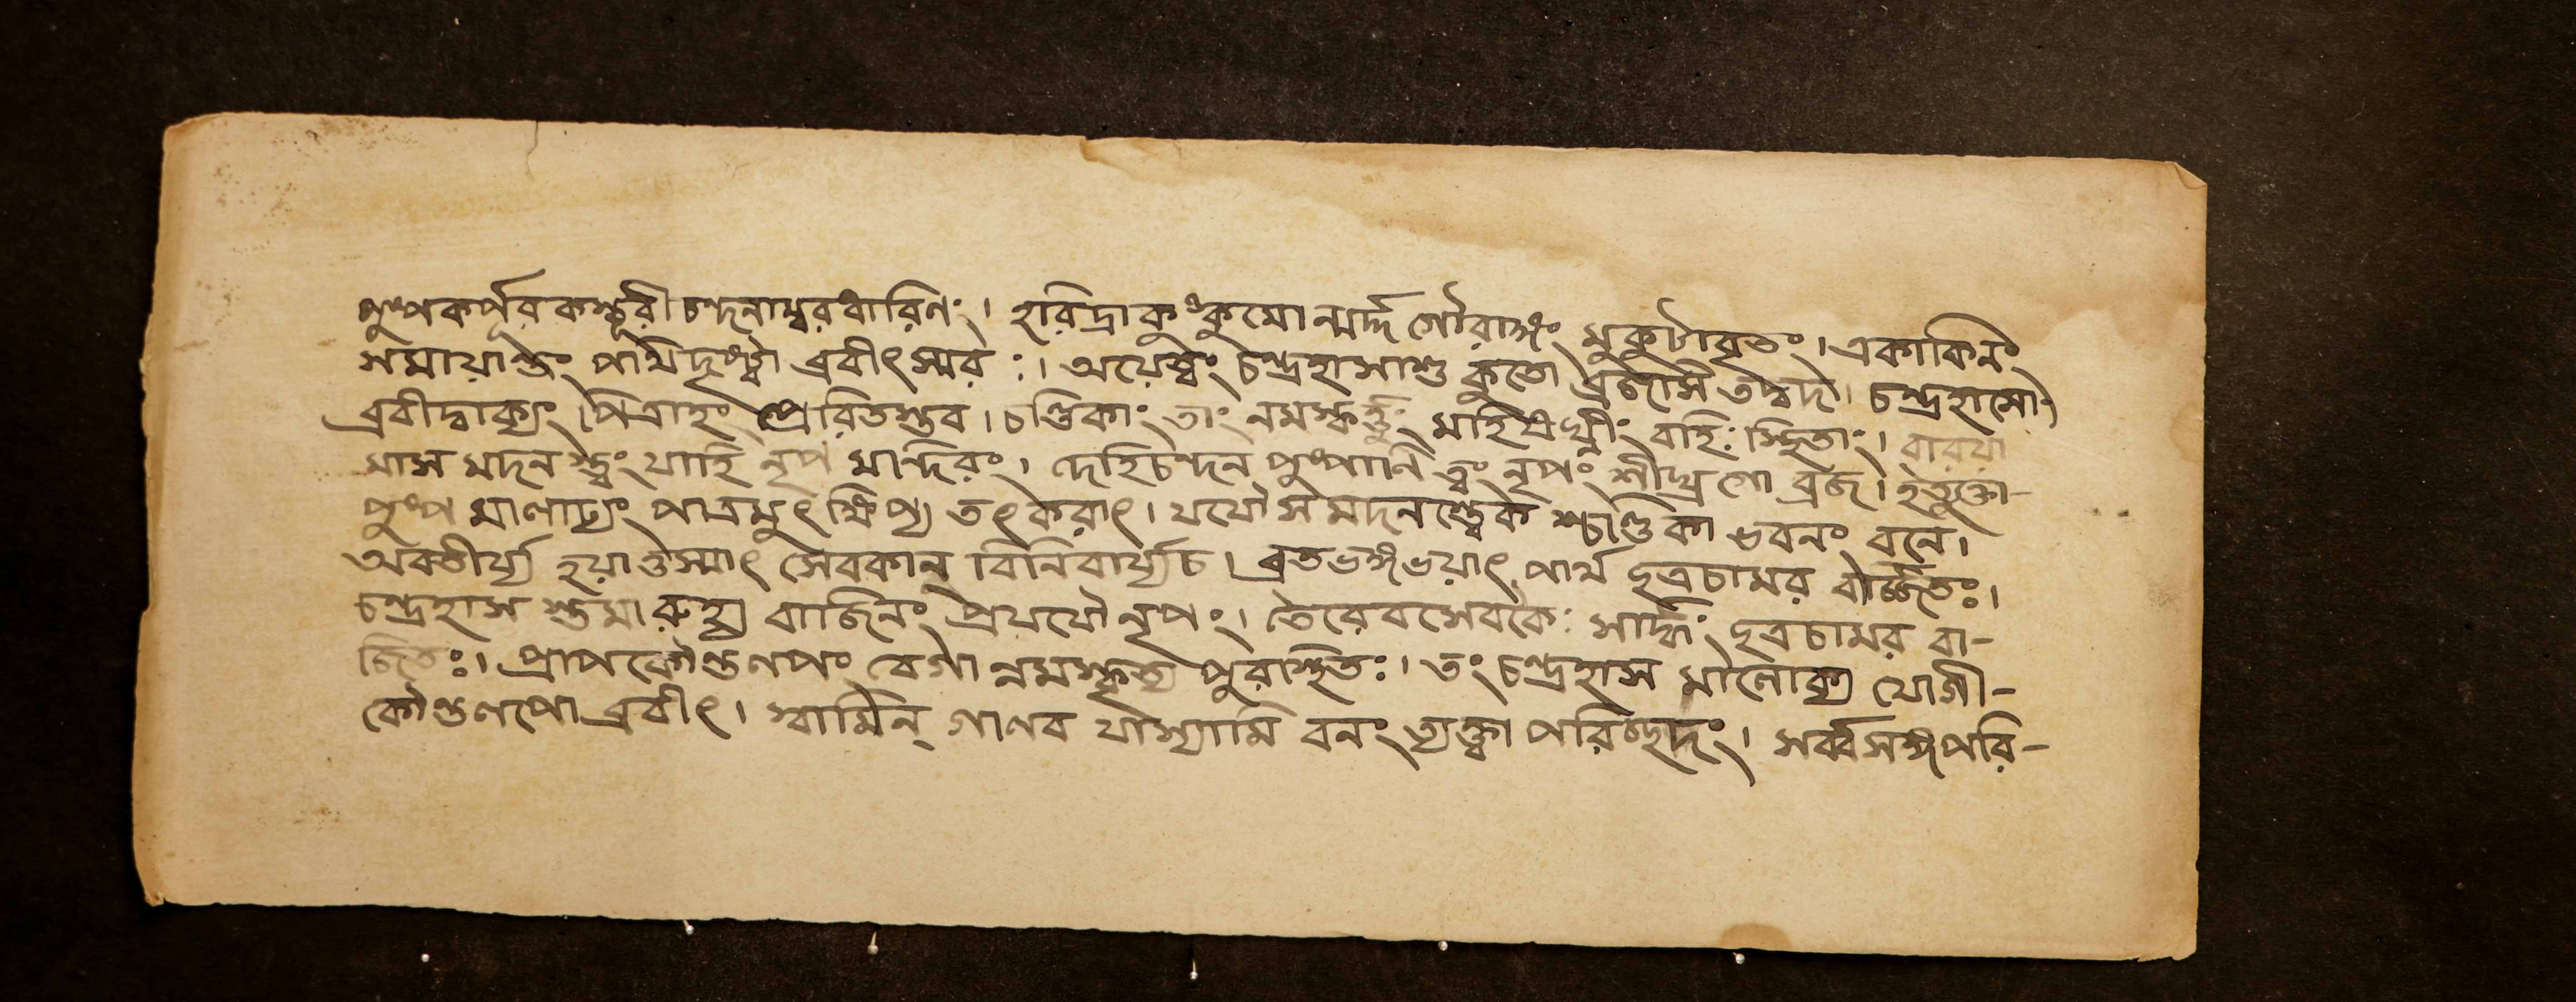 পুষ্পকর্পূরকস্তূরীচন্দনাম্বরধারিণং। হরিদ্রাকুঙ্কুমোন্মর্দ্দগৌরাঙ্গং মুকুটাবৃতং। একাকিনং
সমায়ান্তং পার্থদৃষ্ট্বা ব্রবীৎস্মরঃ। অয়েত্বং চন্দ্রহাসাশু কুতো ব্রজসি তদ্বদ। চন্দ্রহাসো
ব্রবীদ্বাক্যং পিত্রাহং প্রেরিতস্তব। চণ্ডিকাং তাং নমস্কর্ত্তুং মহিষঘ্নীং বহিঃ স্থিতাং। বারয়া
মাস মদন স্ত্বং যাহি নৃপ মন্দিরং। দেহিচন্দন পুষ্পাণি ত্বং নৃপং শীঘ্রগো ব্রজ। ইত্যুক্তা-
পুষ্প মালাঢ্যং পাত্রমুৎক্ষিপ্য তৎকরাৎ। যযৌ স মদনস্ত্বেক শ্চণ্ডিকা ভবনং বনে।
অবতীর্য্য হয়াত্তস্মাৎ সেবকান্ বিনিবার্য্যচ। ব্রতভঙ্গভয়াৎ পার্থ ছত্রচামর বর্জ্জিতঃ।
চন্দ্রহাস স্তমারুহ্য বাজিনং প্রযযৌ নৃপং। তৈরেবসেবকৈঃ সার্দ্ধং ছত্রচামর বী-
জিতঃ। প্রাপকৌন্তলপং বেগা ন্নমস্কৃত্য পুরঃস্থিতঃ। তং চন্দ্রহাস মালোক্য যোগী-
কৌন্তলপো ব্রবীৎ। স্বামিন্ গালব যাস্যামি বনং ত্যক্ত্বা পরিচ্ছদং। সর্ব্বসঙ্গপরি-